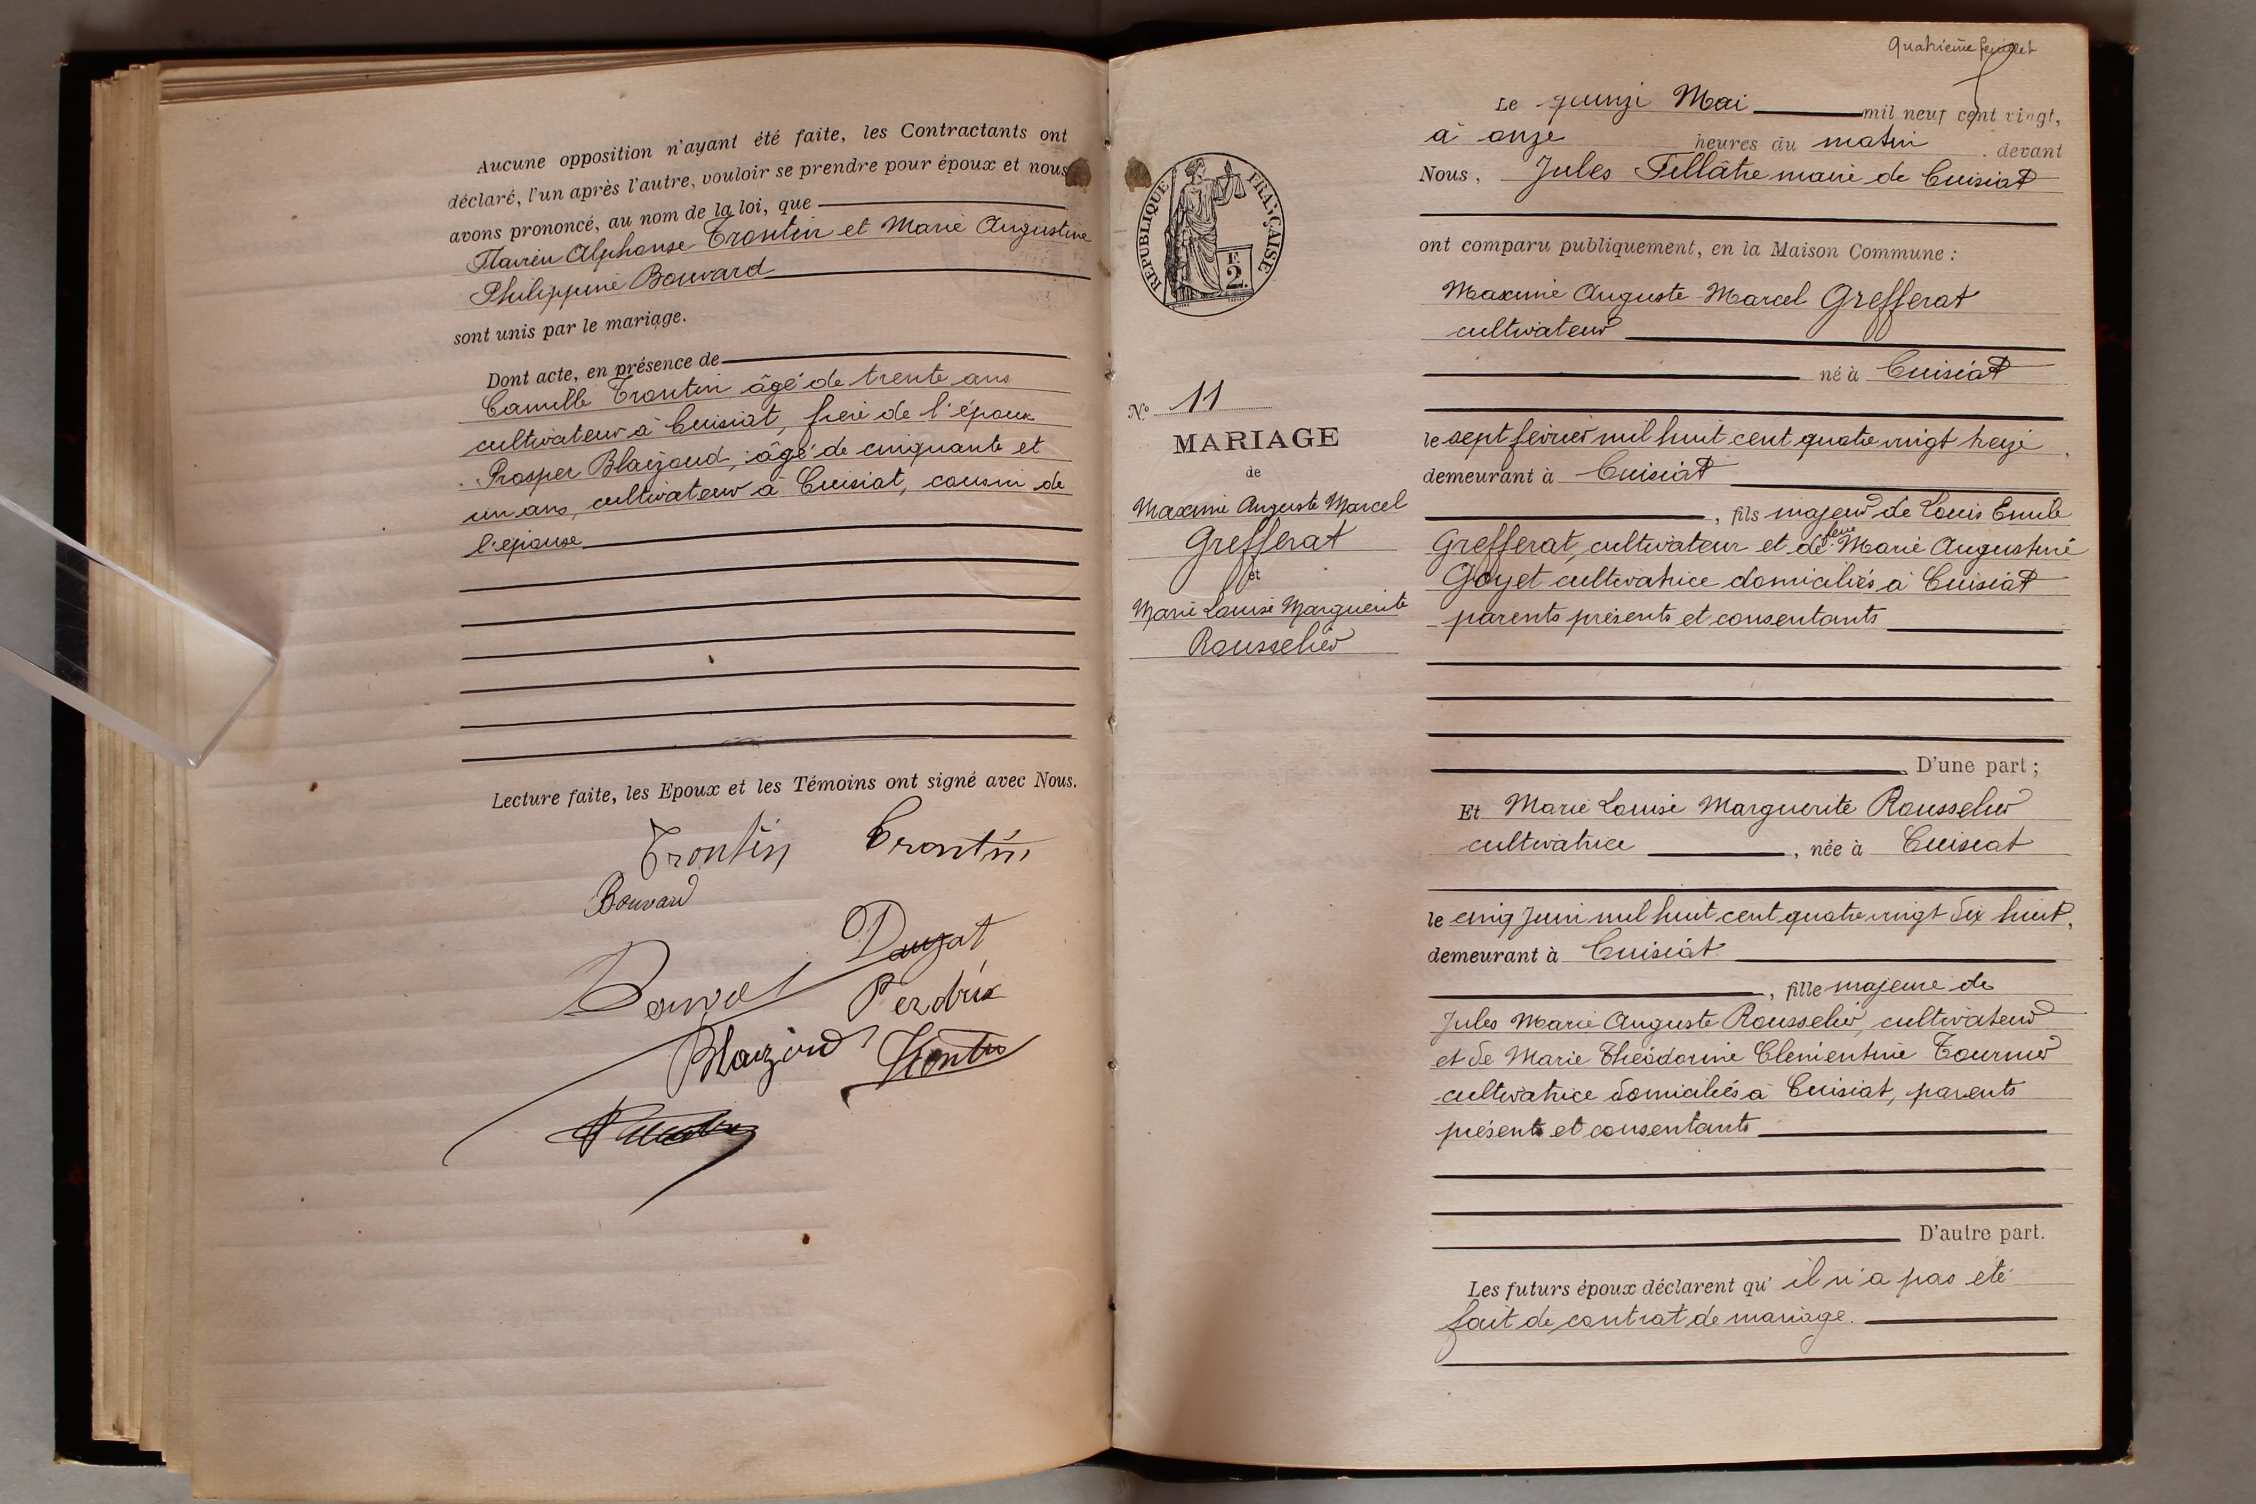 Aucune opposition n'ayant été faite, les Contractants ont
déclaré, l'un après l'autre, vouloir se prendre pour époux et nous
avons prononcé, au nom de la loi, que
Flavien Alphonse Trontin et Marie Augustine
Philippine Bouvard
sont unis par le mariage.
Dont acte, en présence de
Camille Trontin âgé de trente ans
cultivateur à Cuisiat, frère de l'époux
Prosper Blaizoud, âgé de cinquante et
un ans, cultivateur à Cuisiat, cousin de
l'épouse
Lecture faite, les Epoux et les Témoins ont signé avec Nous.
Trontin Trontin
Bouvard
Dauzat
Perdrix
Blaizoud
Quatrième feuillet
Le quinze Mai mil neuf cent vingt,
à onze heures du matin devant
Nous, Jules Fillâtre maire de Cuisiat
ont comparu publiquement, en la Maison Commune :
Maxime Auguste Marcel Grefferat
cultivateur
né à Cuisiat
le sept février mil huit cent quatre vingt treize
demeurant à Cuisiat
, fils majeur de Louis Emile
Grefferat, cultivateur et de feue Marie Augustine
Goyet cultivatrice domiciliés à Cuisiat
parents présents et consentants
D'une part ;
Et Marie Louise Marguerite Rousselier
cultivatrice , née à Cuisiat
le cinq Juin mil huit cent quatre vingt dix huit,
demeurant à Cuisiat
, fille majeure de
Jules Marie Auguste Rousselier, cultivateur
et de Marie Théodorine Clémentine Tournier
cultivatrice domiciliés à Cuisiat, parents
présents et consentants
D'autre part.
Les futurs époux déclarent qu'il n'a pas été
fait de contrat de mariage.
RÉPUBLIQUE FRANÇAISE
F.
2.
N° 11
MARIAGE
de
Maxime Auguste Marcel
Grefferat
et
Marie Louise Marguerite
Rousselier